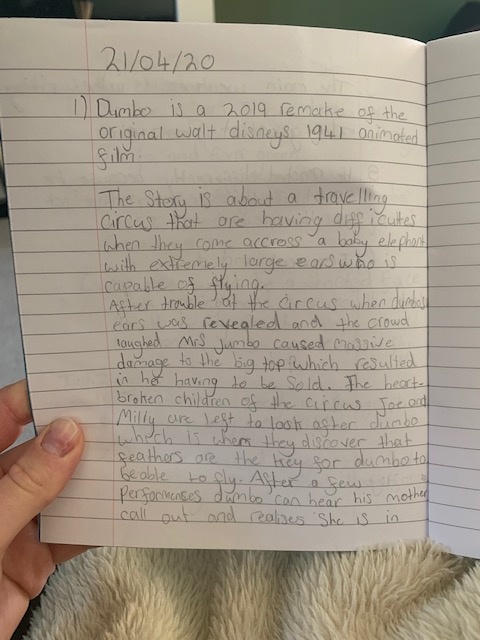 21/04/20
1) Dumbo is a 2019 remake of the
original walt disneys 1941 animated
film.
The Story is about a travelling
circus that are having difficultes
when they come accross a baby elephant
with extremely large ears who is
capable of flying.
After trouble at the circus when dumbos
ears was revealed and the crowd
laughed Mrs Jumbo caused massive
damage to the big top which resulted
in her having to be sold. The heart-
broken children of the circus Joe and
Milly are left to look after dumbo
which is when they discover that
feathers are the key for dumbo to
beable to fly. After a few
performenses dumbo can hear his mother
call out and realises She is in